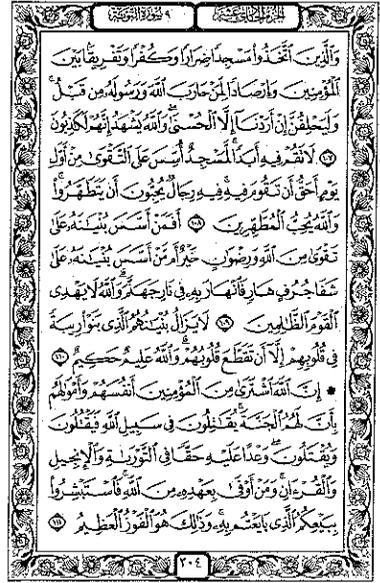 الجزء الحادي عشر ٩ سورة التوبة
وَالَّذِينَ اتَّخَذُوا مَسْجِدًا ضِرَارًا وَكُفْرًا وَتَفْرِيقًا بَيْنَ
الْمُؤْمِنِينَ وَإِرْصَادًا لِّمَنْ حَارَبَ اللَّهَ وَرَسُولَهُ مِن قَبْلُ
وَلَيَحْلِفُنَّ إِنْ أَرَدْنَا إِلَّا الْحُسْنَىٰ وَاللَّهُ يَشْهَدُ إِنَّهُمْ لَكَاذِبُونَ
١٠٧ لَا تَقُمْ فِيهِ أَبَدًا لَّمَسْجِدٌ أُسِّسَ عَلَى التَّقْوَىٰ مِنْ أَوَّلِ
يَوْمٍ أَحَقُّ أَن تَقُومَ فِيهِ فِيهِ رِجَالٌ يُحِبُّونَ أَن يَتَطَهَّرُوا
وَاللَّهُ يُحِبُّ الْمُطَّهِّرِينَ ١٠٨ أَفَمَنْ أَسَّسَ بُنْيَانَهُ عَلَىٰ
تَقْوَىٰ مِنَ اللَّهِ وَرِضْوَانٍ خَيْرٌ أَم مَّنْ أَسَّسَ بُنْيَانَهُ عَلَىٰ
شَفَا جُرُفٍ هَارٍ فَانْهَارَ بِهِ فِي نَارِ جَهَنَّمَ وَاللَّهُ لَا يَهْدِي
الْقَوْمَ الظَّالِمِينَ ١٠٩ لَا يَزَالُ بُنْيَانُهُمُ الَّذِي بَنَوْا رِيبَةً
فِي قُلُوبِهِمْ إِلَّا أَن تَقَطَّعَ قُلُوبُهُمْ وَاللَّهُ عَلِيمٌ حَكِيمٌ ١١٠
۞ إِنَّ اللَّهَ اشْتَرَىٰ مِنَ الْمُؤْمِنِينَ أَنفُسَهُمْ وَأَمْوَالَهُم
بِأَنَّ لَهُمُ الْجَنَّةَ يُقَاتِلُونَ فِي سَبِيلِ اللَّهِ فَيَقْتُلُونَ
وَيُقْتَلُونَ وَعْدًا عَلَيْهِ حَقًّا فِي التَّوْرَاةِ وَالْإِنجِيلِ
وَالْقُرْآنِ وَمَنْ أَوْفَىٰ بِعَهْدِهِ مِنَ اللَّهِ فَاسْتَبْشِرُوا
بِبَيْعِكُمُ الَّذِي بَايَعْتُم بِهِ وَذَٰلِكَ هُوَ الْفَوْزُ الْعَظِيمُ ١١١
٢٠٤